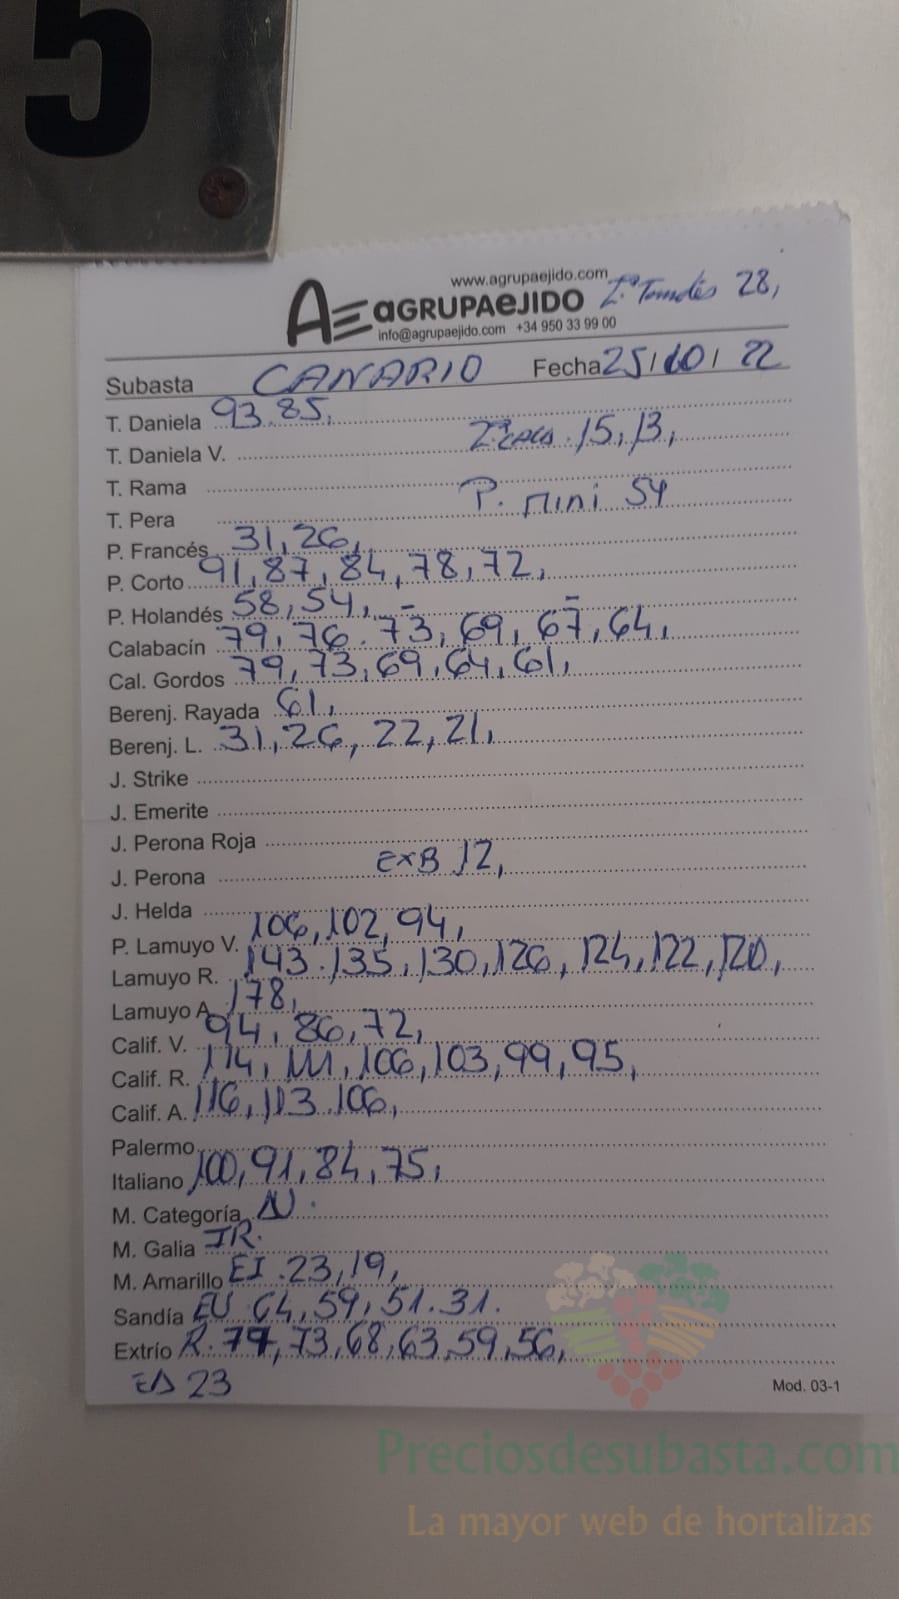 5
www.agrupaejido.com
AE aGRUPAeJIDO
info@agrupaejido.com +34 950 33 99 00
28,
Subasta CANARIO Fecha 25/10/22
T. Daniela 93.85,
T. Daniela V. 2ª 15, 13,
T. Rama
T. Pera P. mini 54
P. Francés 31, 26,
P. Corto 91, 87, 84, 78, 72,
P. Holandés 58, 54,
Calabacín 79, 76. 73, 69, 67, 64,
Cal. Gordos 79, 73, 69, 64, 61,
Berenj. Rayada 61,
Berenj. L. 31, 26, 22, 21,
J. Strike
J. Emerite
J. Perona Roja
J. Perona EXB 12,
J. Helda
P. Lamuyo V. 106, 102, 94,
Lamuyo R. 143. 135, 130, 126, 124, 122, 120,
Lamuyo A. 178,
Calif. V. 94, 86, 72,
Calif. R. 114, 111, 106, 103, 99, 95,
Calif. A. 116, 113. 106,
Palermo
Italiano 100, 91, 84, 75,
M. Categoría
M. Galia
M. Amarillo EI. 23, 19,
Sandía EU 64, 59, 51. 31.
Extrío R. 77, 73, 68, 63, 59, 56,
23
Mod. 03-1
Preciosdesubasta.com
La mayor web de hortalizas